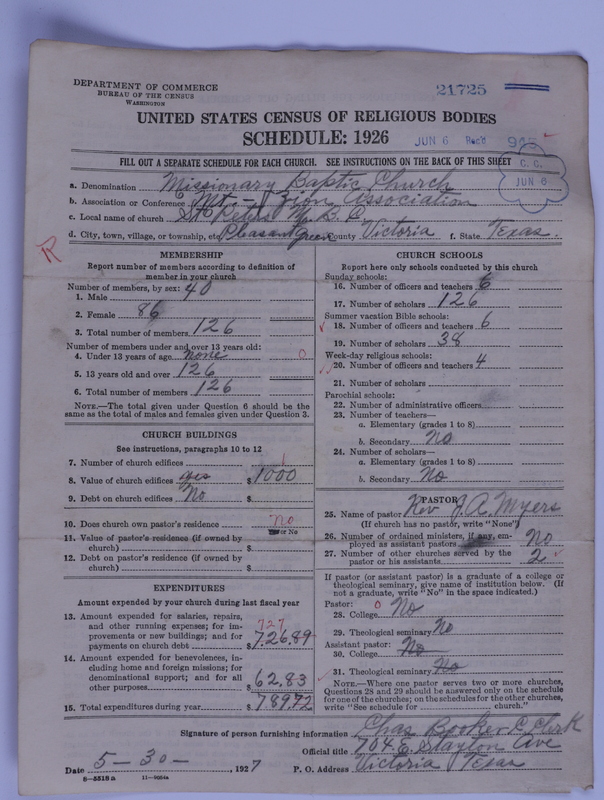 DEPARTMENT OF COMMERCE
BUREAU OF THE CENSUS
WASHINGTON
21725
UNITED STATES CENSUS OF RELIGIOUS BODIES
SCHEDULE: 1926
JUN 6 Rec'd
C. C.
JUN 6
FILL OUT A SEPARATE SCHEDULE FOR EACH CHURCH. SEE INSTRUCTIONS ON THE BACK OF THIS SHEET
a. Denomination Missionary Baptic Church
b. Association or Conference Mt. Zion Association
c. Local name of church St Peters M. B. C
d. City, town, village, or township, etc. Pleasant Green County Victoria f. State Texas.
R
MEMBERSHIP
Report number of members according to definition of
member in your church
Number of members, by sex:
1. Male 40
2. Female 86
3. Total number of members 126
Number of members under and over 13 years old:
4. Under 13 years of age none 0
5. 13 years old and over 126
6. Total number of members 126
NOTE.—The total given under Question 6 should be the
same as the total of males and females given under Question 3.
CHURCH BUILDINGS
See instructions, paragraphs 10 to 12
7. Number of church edifices 1
8. Value of church edifices yes $ 1000
9. Debt on church edifices No $
10. Does church own pastor's residence no
Yes or No
11. Value of pastor's residence (if owned by
church) $
12. Debt on pastor's residence (if owned by
church) $
EXPENDITURES
Amount expended by your church during last fiscal year
13. Amount expended for salaries, repairs,
and other running expenses; for im-
provements or new buildings; and for
payments on church debt $ 726.89
727
14. Amount expended for benevolences, in-
cluding home and foreign missions; for
denominational support; and for all
other purposes $ 62.83
15. Total expenditures during year $ 789.72
CHURCH SCHOOLS
Report here only schools conducted by this church
Sunday schools:
16. Number of officers and teachers 6
17. Number of scholars 126
Summer vacation Bible schools:
18. Number of officers and teachers 6
19. Number of scholars 38
Week-day religious schools:
20. Number of officers and teachers 4
21. Number of scholars
Parochial schools:
22. Number of administrative officers
23. Number of teachers—
a. Elementary (grades 1 to 8)
b. Secondary No
24. Number of scholars—
a. Elementary (grades 1 to 8)
b. Secondary No
PASTOR
25. Name of pastor Rev J. R. Myers
(If church has no pastor, write "None")
26. Number of ordained ministers, if any, em-
ployed as assistant pastors No
27. Number of other churches served by the
pastor or his assistants 2
If pastor (or assistant pastor) is a graduate of a college or
theological seminary, give name of institution below. (If
not a graduate, write "No" in the space indicated.)
Pastor: 0
28. College No
29. Theological seminary No
Assistant pastor:
30. College No
31. Theological seminary No
NOTE.—Where one pastor serves two or more churches,
Questions 28 and 29 should be answered only on the schedule
for one of the churches; on the schedules for the other churches,
write "See schedule for church."
Signature of person furnishing information Chas Booker C. Clerk
Official title 704 E. Stayton Ave
Date 5-30-, 1927 P. O. Address Victoria Texas
8-5518a 11-9054a